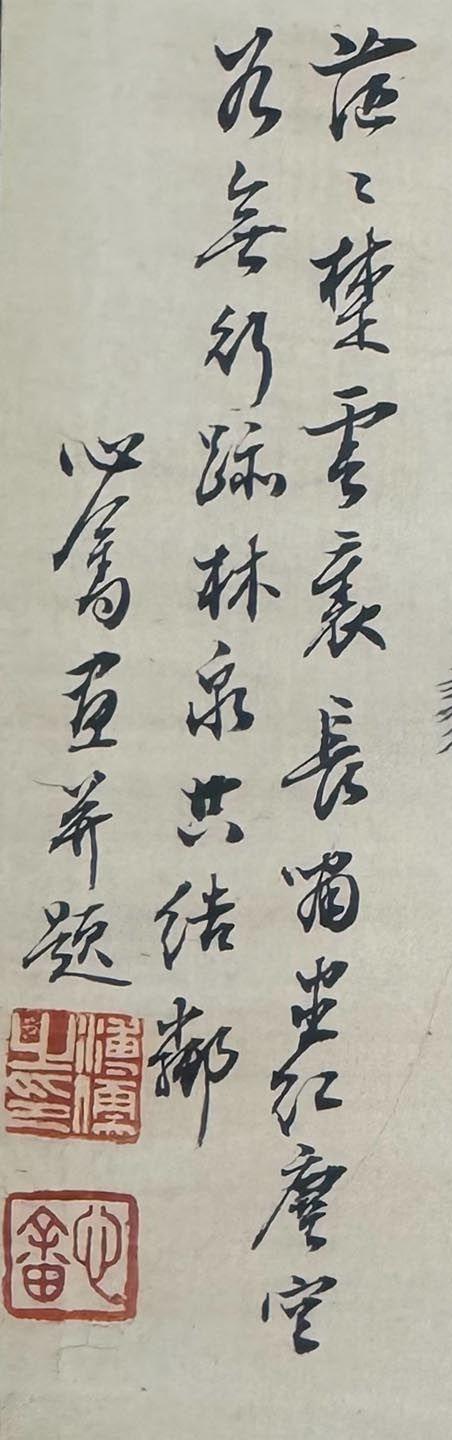 茫〻楚雲裏長嘯坐紅塵空
谷無行跡林泉共結鄰
心畬畫并題
溥儒之印
心畬